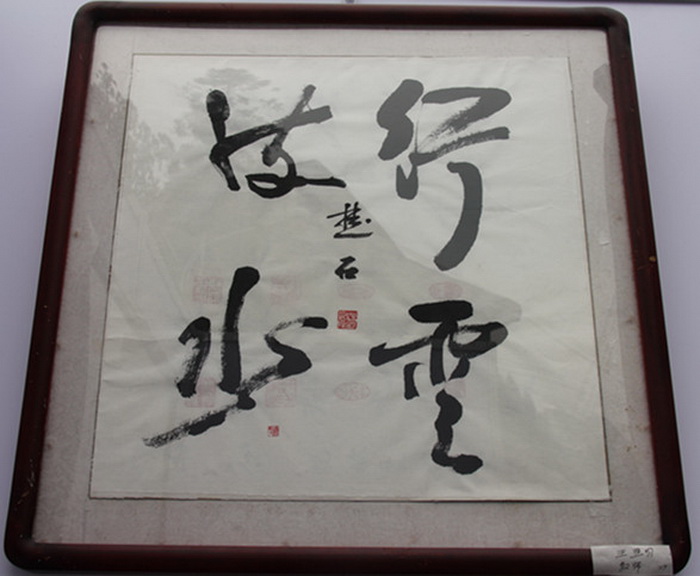 行雲
流水
楚石